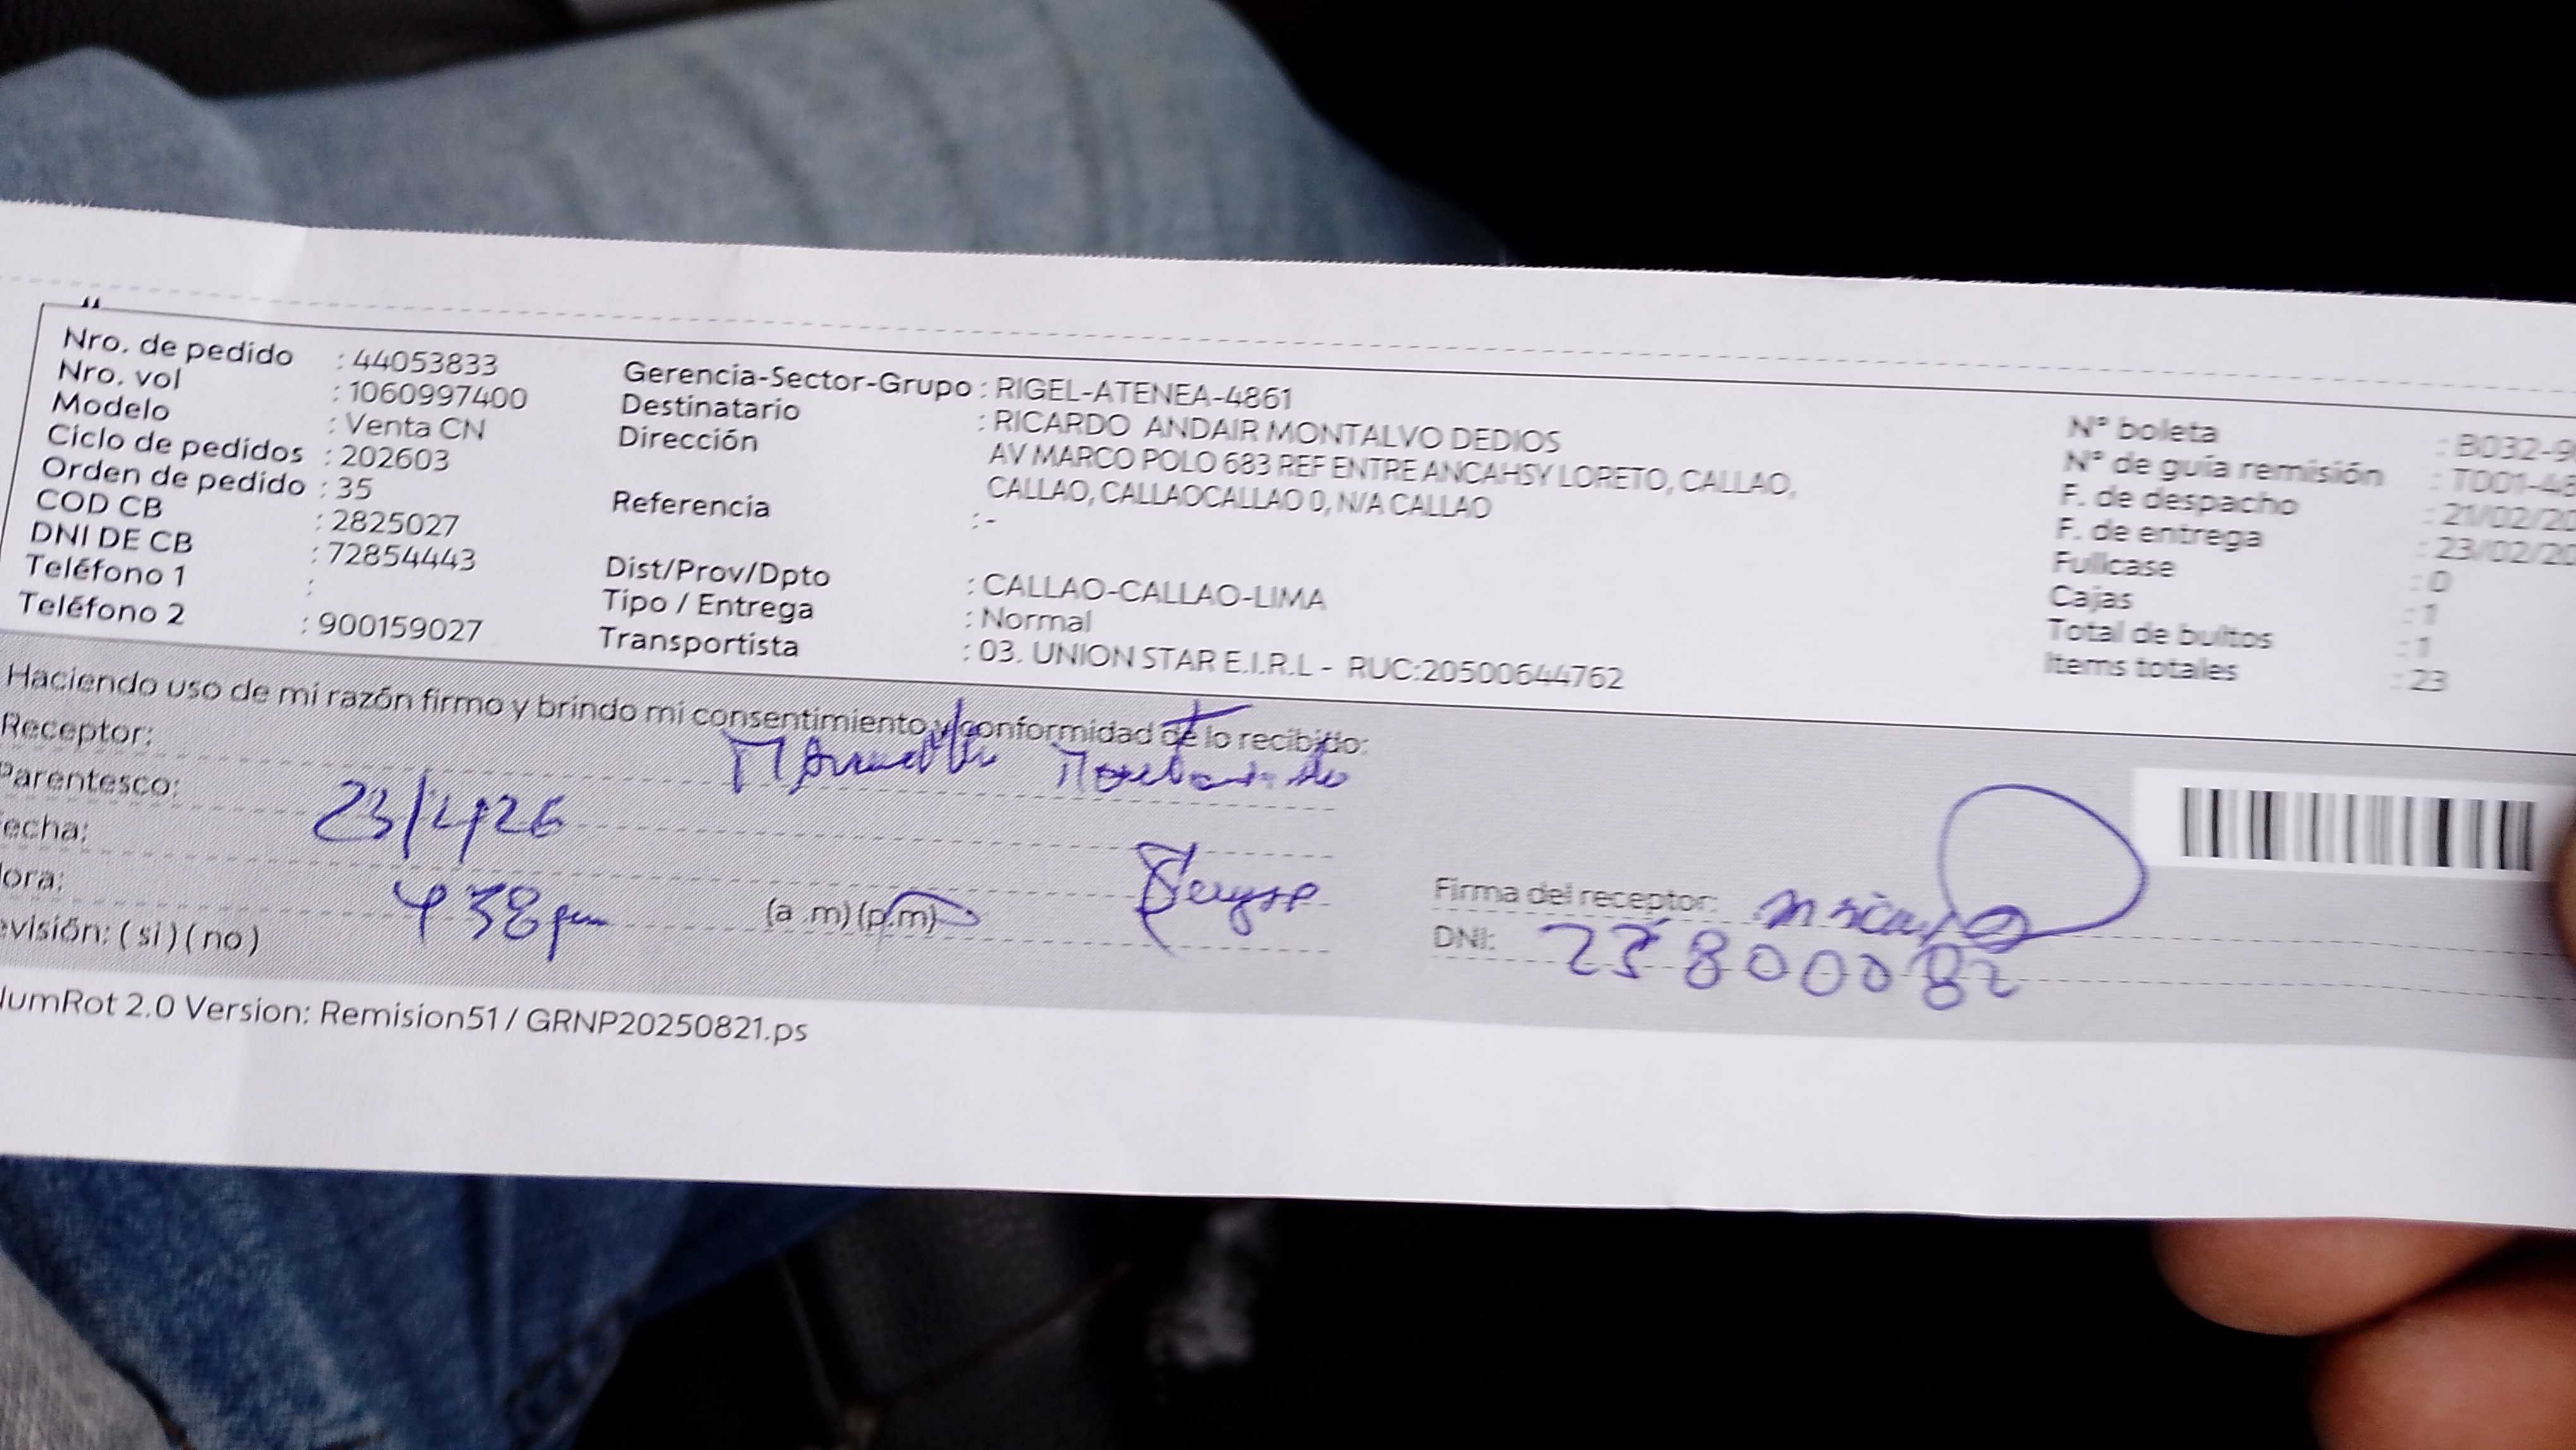 Nro. de pedido : 44053833
Nro. vol : 1060997400
Modelo : Venta CN
Ciclo de pedidos : 202603
Orden de pedido : 35
COD CB : 2825027
DNI DE CB : 72854443
Teléfono 1 :
Teléfono 2 : 900159027
Gerencia-Sector-Grupo : RIGEL-ATENEA-4861
Destinatario : RICARDO ANDAIR MONTALVO DEDIOS
Dirección AV MARCO POLO 683 REF ENTRE ANCAHSY LORETO, CALLAO,
CALLAO, CALLAOCALLAO 0, N/A CALLAO
Referencia : -
Dist/Prov/Dpto : CALLAO-CALLAO-LIMA
Tipo / Entrega : Normal
Transportista : 03. UNION STAR E.I.R.L - RUC:20500644762
N° boleta : B032-9
N° de guía remisión : T001-48
F. de despacho : 21/02/20
F. de entrega : 23/02/20
Fullcase : 0
Cajas : 1
Total de bultos : 1
Items totales : 23
Haciendo uso de mi razón firmo y brindo mi consentimiento y conformidad de lo recibido:
Receptor:
Parentesco:
echa: 23/2/26
ora: 4 38 pm (a .m) (p.m)
evisión: ( si ) ( no )
Firma del receptor:
DNI: 25800082
NumRot 2.0 Version: Remision51 / GRNP20250821.ps